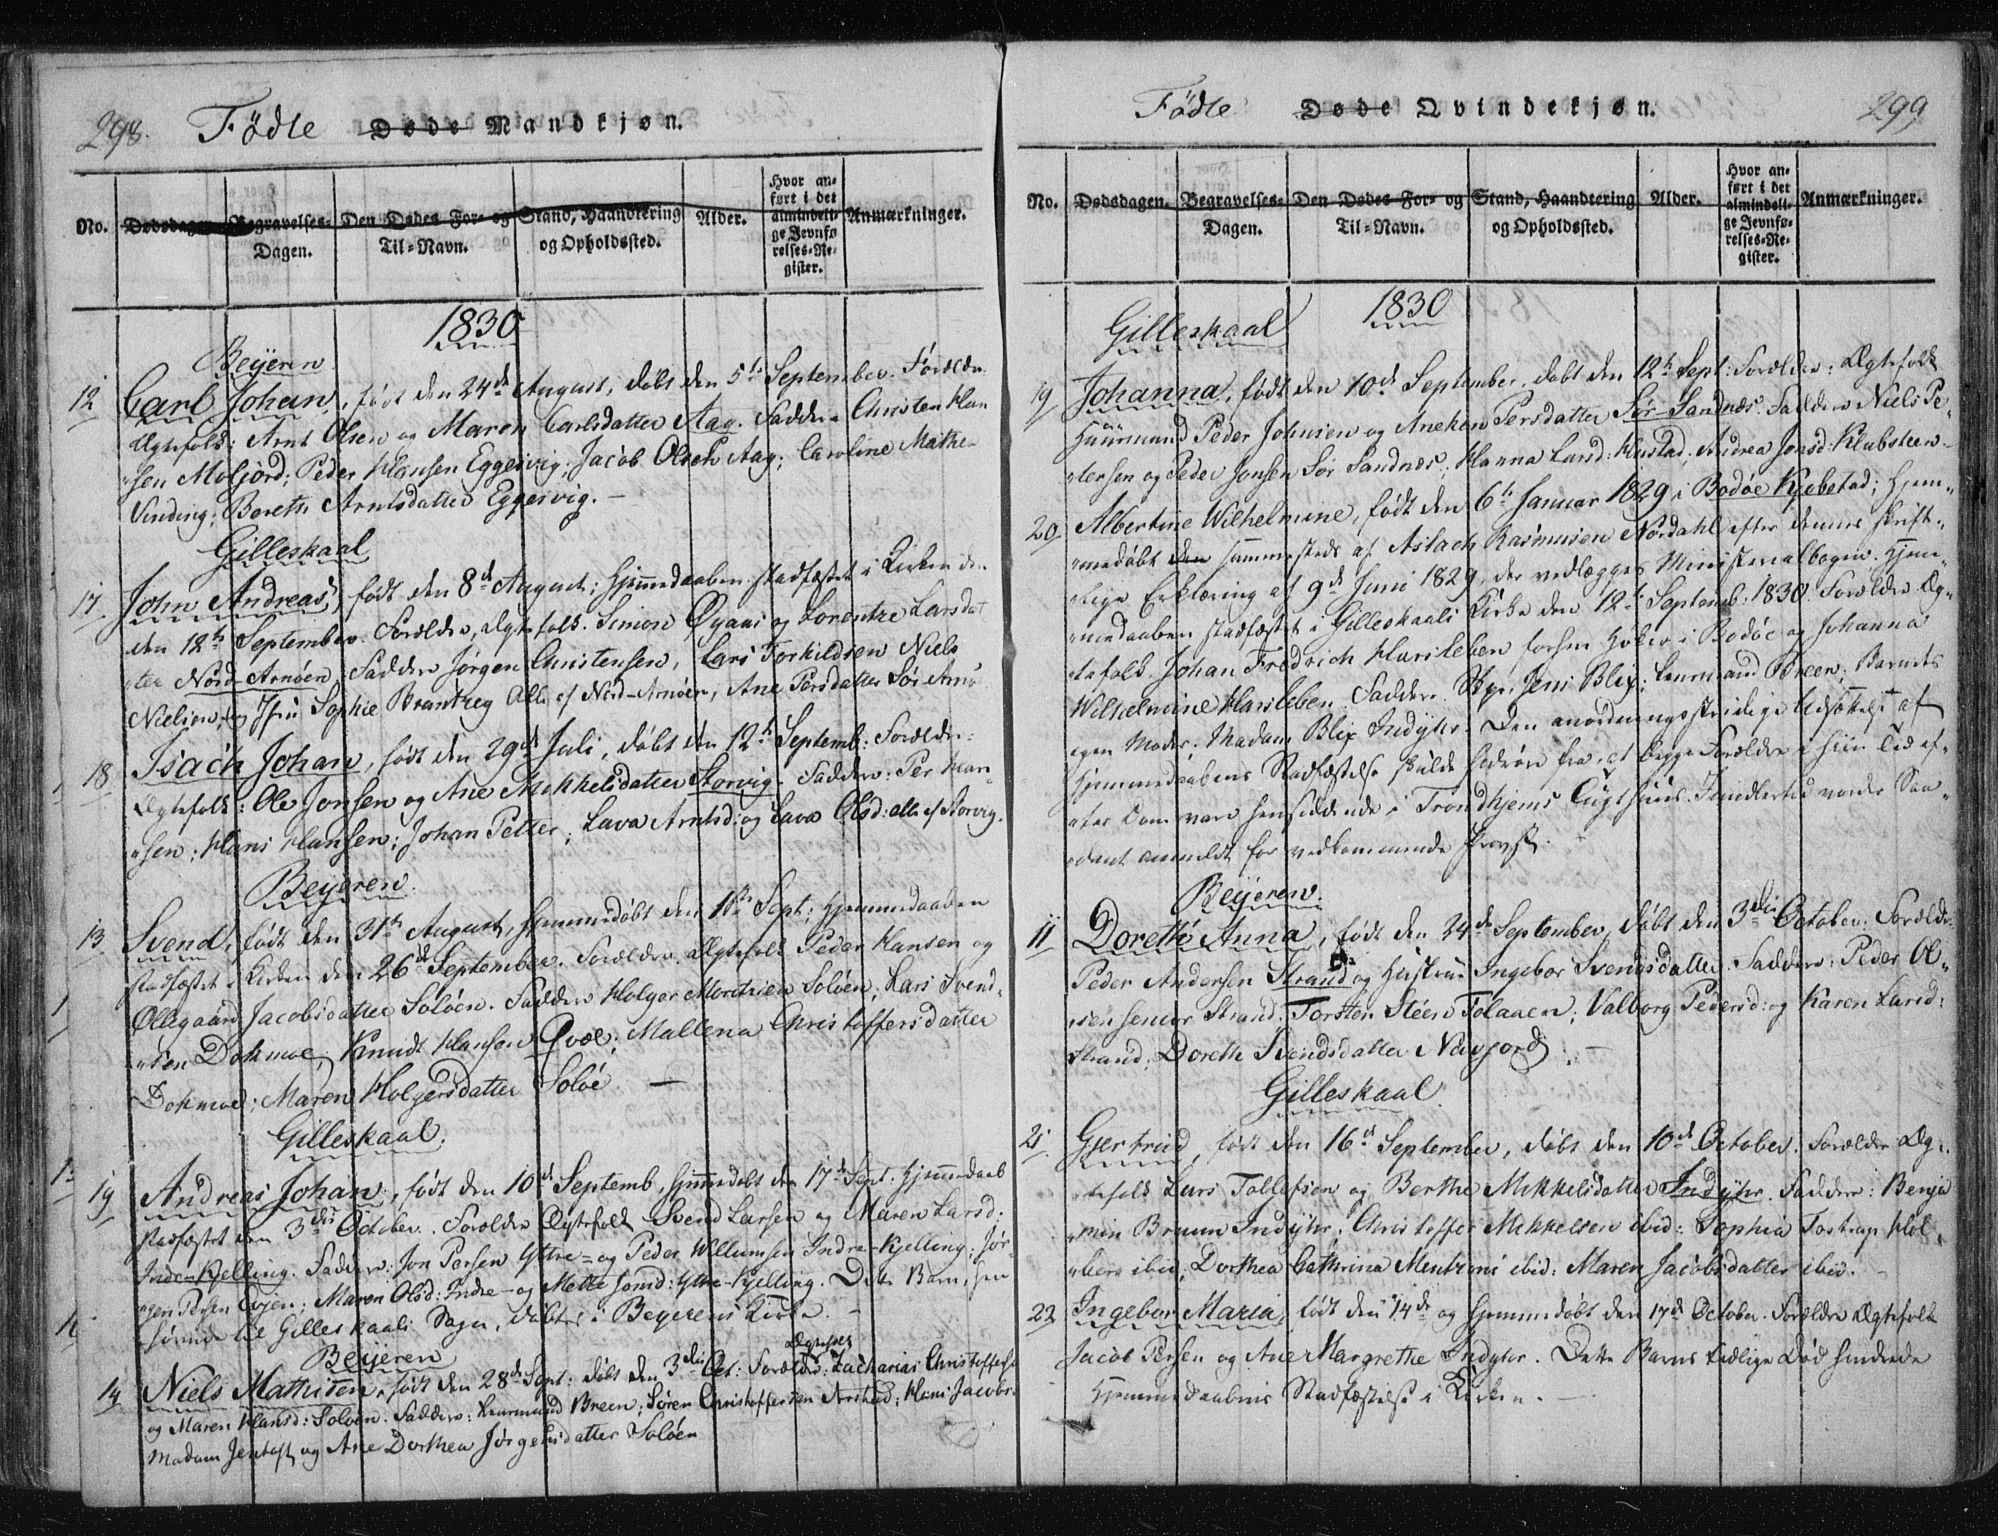 298.
Fødte Døde Mandkjøn.
No.
Dødsdagen.
Begravelses-
Dagen.
Den Dødes For- og
Til-Navn.
Stand, Haandtering
og Opholdssted.
Alder.
Hvor an-
ført i det
almindeli-
ge Jevnfø-
relses-Re-
gister.
Anmærkninger.
1830
Beyeren
12 Carl Johan, født den 24de August, døbt den 5te September. Forældre
Ægtefolk: Arnt Olsen og Maren Carlsdatter Aag. Faddere Christen Han
"sen Moljord; Peder Hansen Eggesvig; Jacob Olsen Aag; Caroline Mathea
Sinding; Bereth Arntsdatter Eggesvig. —
Gilleskaal
17 John Andreas, født den 8de August; Hjemmedaaben stadfæstet i Kirken den
den 12te September. Forældre, Ægtefolk. Simon Øyaas og Lorentze Larsdat
"ter Nord-Arnøen. Faddere Jørgen Christensen, Lars Torkildsen Niels
Nielsen, og Jfru Sophie Brantzeg Alle af Nord-Arnøen, Ane Persdatter Sør Arnø
18 Isach Johan, født den 29de Juli, døbt den 12te Septemb: Forældre
Ægtefolk: Ole Jonsen og Ane Mikkelsdatter Storvig. Faddere: Per Han
"sen; Hans Hansen; Johan Petter; Lava Arntsd: og Lava Olsd: alle af Storvig.
Beyeren.
13 Svend, født den 31te August, hjemmedøbt den 1ste Sept: Hjemmedaaben
stadfæstet i Kirken den 26de September. Forældre Ægtefolk Peder Hansen og
Ollegaard Jacobsdatter Soløen. Faddere Holger Mortensen Soløen; Lars Svend-
"sen Dokmoe, Knudt Hansen Qvæl; Mallena Christoffersdatter
Dokmoe; Maren Holgersdatter Soløe. —
Gilleskaal.
19 Andreas Johan, født den 10de Septemb, hjemmedøbt den 17de Sept. Hjemmedaab
stadfæstet den 3die October. Forældre Ægtefolk Svend Larsen og Maren Larsd:
Indre Kjelling. Faddere: Jon Persen Yttre- og Peder Willumsen Indre-Kjelling; Jør-
"gen Persen Evjen; Maren Olsd: Indre- og Mette Jonsd: Yttre-Kjelling. Dette Barn, hen
"hørende til Gilleskaals Sogn, døbtes i Beyerens Kirke. —
Beyeren
14 Niels Mathisen, født den 28de Sept: døbt den 3die Oct: Forældre: Ægtefolk Zacharias Christoffersen
og Maren Hansd: Soløen. Faddere: Leurmand Breen; Søren Christoffersen Arstad; Hans Jacobs
Madam Jentoft og Ane Dorthea Jørgensdatter Soløen
Fødte Døde Qvindekjøn.
299
No.
Dødsdagen.
Begravelses-
Dagen.
Den Dødes For- og
Til-Navn.
Stand, Haandtering
og Opholdssted.
Alder.
Hvor an-
ført i det
almindeli-
ge Jevnfø-
relses-Re-
gister.
Anmærkninger.
1830
Gilleskaal
19 Johanna, født den 10de September, døbt den 12te Sept: Forældre: Ægtefolk
Huusmand Peder Johnsen og Aneken Persdatter Sør-Sandnæs. Faddere Niels Pe-
"tersen og Peder Jonsen Sør Sandnæs; Hanna Lund: Hustad; Andrea Jonsd: Klubsteen
20 Albertine Wilhelmine, født den 6te Januar 1829 i Bodøe Kjøbstad; hjem-
"medøbt den sammesteds af Aslach Rasmusen Nordahl efter dennes skrift-
"lige Erklæring af 9de Juni 1829, der vedlægges Ministerialbogen. Hjem-
"medaaben stadfæstet i Gilleskaals Kirke den 12te Septemb. 1830. Forældre Æg-
"tefolk. Johan Fredrich Harsleben forhen Høker i Bodøe og Johanna
Wilhelmine Harsleben. Faddere. Jens Blix; Leurmand Breen; Barnets
egen Moder; Madam Blix Indyhr. Den anordningsstridige Udsættelse af
Hjemmedaabens Stadfæstelse skulde hidrøre fra, at begge Forældre i sin Tid ef-
"ter Dom vare hensiddende i Trondhjems Tugthuus. Imidlertid vorder Saa-
"dant anmeldt for vedkommende Provst.
Beyeren.
11 Dorette Anna, født den 24de September, døbt den 3die October. Forældre:
Peder Andersen Strand og Hustrue Ingebor Svendsdatter. Faddere: Peder Ol-
"sen senior Strand. Torsten Steen Tolaaen; Valborg Pedersd: og Karen Larsd:
Strand; Doreth Svendsdatter Navjord. —
Gilleskaal
21 Gjertrud, født den 16de September, døbt den 10de October. Forældre Æg-
"tefolk Lars Tollefsen og Berthe Mikkelsdatter Indyhr. Faddere: Benja
"min Bruun Indyhr; Christoffer Mikkelsen ibid: Sophia Tostrup Hol-
"berg ibid; Dorthea Cathrina Mentzoni ibid: Maren Jacobsdatter ibid. —
22 Ingebor Maria, født den 14de og hjemmedøbt den 17de October. Forældre Ægtefolk
Jacob Persen og Ane Margrethe Indyhr. Dette Barns tidlige Død hindrede
Hjemmedaabens Stadfæstelse i Kirken. —